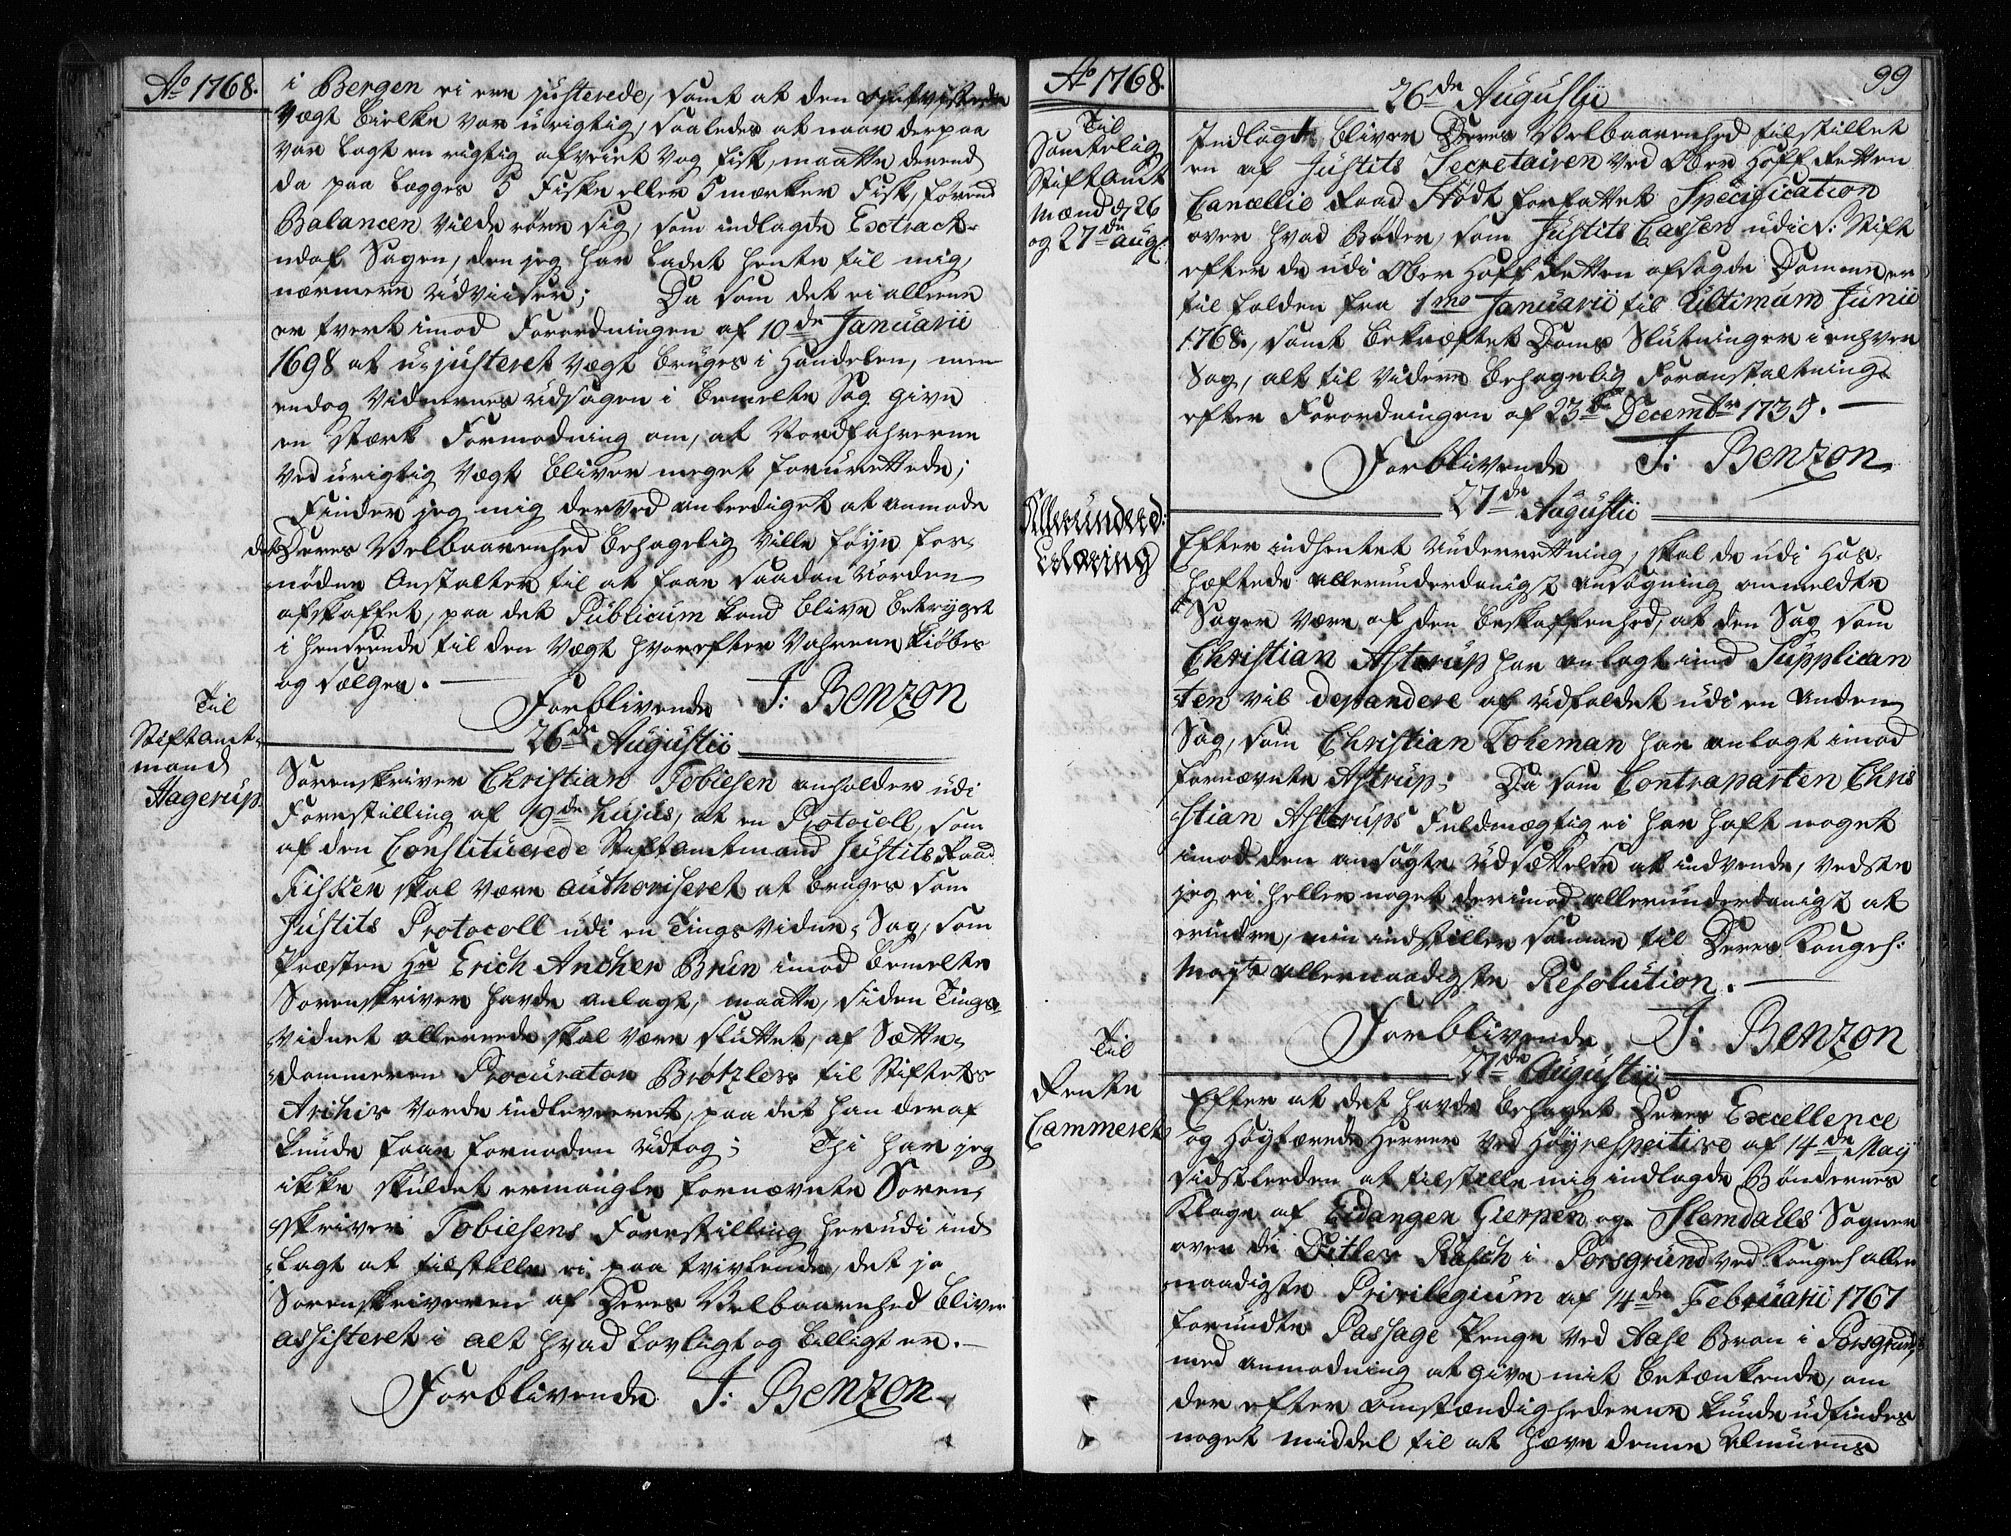 Aº 1768.
i Bergen ei ere justerede, samt at den
Vægt Bielke var urigtig, saaledes at naar derpaa
var lagt en rigtig afveiet Vog Fisk, maatte derend
da paa lægges 5 Fiske eller 5 mærker Fisk, førend
Balancen vilde røre sig, som indlagde Extract
udaf Sagen, den jeg har ladet hente til mig,
nærmere udviiser; Da som det ei alleene
er tvert imod Forordningen af 10de Januarii
1698 at u-justeret Vægt bruges i Handelen, men
endog Vidnernes udsagen i bemelte Sag give
en stærk Formodning om, at Nordfahrerne
ved urigtig Vægt bliver meget forurettede;
Finder jeg mig derved anlediget at anmode
Deres Velbaarenhed behagelig ville føye for-
nødne Anstalter til at faae saadan Uorden
afskaffet, paa det Publicum kand blive betrygget
i henseende til den Vægt hvorefter Vahrene kiøbes
og sælges.
Forblivende J: Benzon
Til
Stiftamt-
mand
Hagerup
26de Augustii
Sorenskriver Christian Tobiesen anholder udi
Forestilling af 19de hujus, at en Protocoll, som
af den Constituerede Stiftamtmand Justits Raad
skal være authoriseret at bruges som
Justits Protocoll udi en Tings Vidne-Sag, som
Præsten Hr Erich Ancher Brun imod bemelte
Sorenskriver havde anlagt, maatte, siden Tings-
Vidnet allerede skal være sluttet, af Sætte-
dommeren Procurator Brotzler til Stiftets
Archiv vorde indleveret, paa det han deraf
kunde faae fornøden Udtog; Thi har jeg
ikke skuldet ermangle fornævnte Soren-
skriver Tobiesens Forestilling herudi ind
lagt at tilstille, ei paa tvivlende, det jo
Sorenskriveren af Deres Velbaarenhed bliver
assisteret i alt hvad Lovligt og billigt er.
Forblivende J: Benzon
Aº 1768.
99
Til
Samtelig
Stiftamt
Mænd d. 26
og 27de aug.
26de Augustii
Indlagt bliver Deres Velbaarenhed tilstillet
en af Justits Secretairen ved Ober Hoff Retten
Cancellie Raad Stødt forfattet Specification
over hvad Bøder, som Justits Cassen udi d: Stift
efter de udi Ober Hoff Retten afsagde Domme, er
til falden fra 1mo Januarii til Ultimum Junii
1768, samt bekræftet Doms Slutninger i enhver
Sag, alt til videre behagelig Foranstaltning
efter Forordningen af 23de Decembr 1735.
Forblivende J: Benzon
Allerunderd:
Erklæring
27de Augustii
Efter indhentet Underretning, skal de udi hos-
hæftede allerunderdanigst ansøgning anmeldte
Sager være af den beskaffenhed, at den Sag som
Christian Astrup har anlagt imod Supplican
ten vil dependere af udfaldet udi en anden
Sag, som Christian Loheman har anlagt imod
fornævnte Astrup; Da som Contraparten Chri
stian Astrups Fuldmægtig ei har haft noget
imod den ansøgte Udsættelse at indvende, vedste
jeg ei heller noget derimod allerunderdanigst at
erindre, men indstiller samme til Deres Kongel:
Mayts allernaadigste Resolution.
Forblivende J: Benzon
Til
Rente
Cammeret
27de Augustii
Efter at det havde behaget Deres Excellence
og Høytærede Herrer ved Høyrespective af 14de May
sidstleeden at tilstille mig indlagde Bøndernes
Klage af Eidanger Gierpen og Slemdalls Sogner
over de Ditlev Rasch i Porsgrund ved Kongel aller
naadigste Privilegium af 14de Februarii 1767
forundte Passage Penge ved Aase Broe i Porsgrund,
med anmodning at give mit betænkende, om
der efter omstændighederne kunde udfindes
noget middel til at hæve denne Almuens